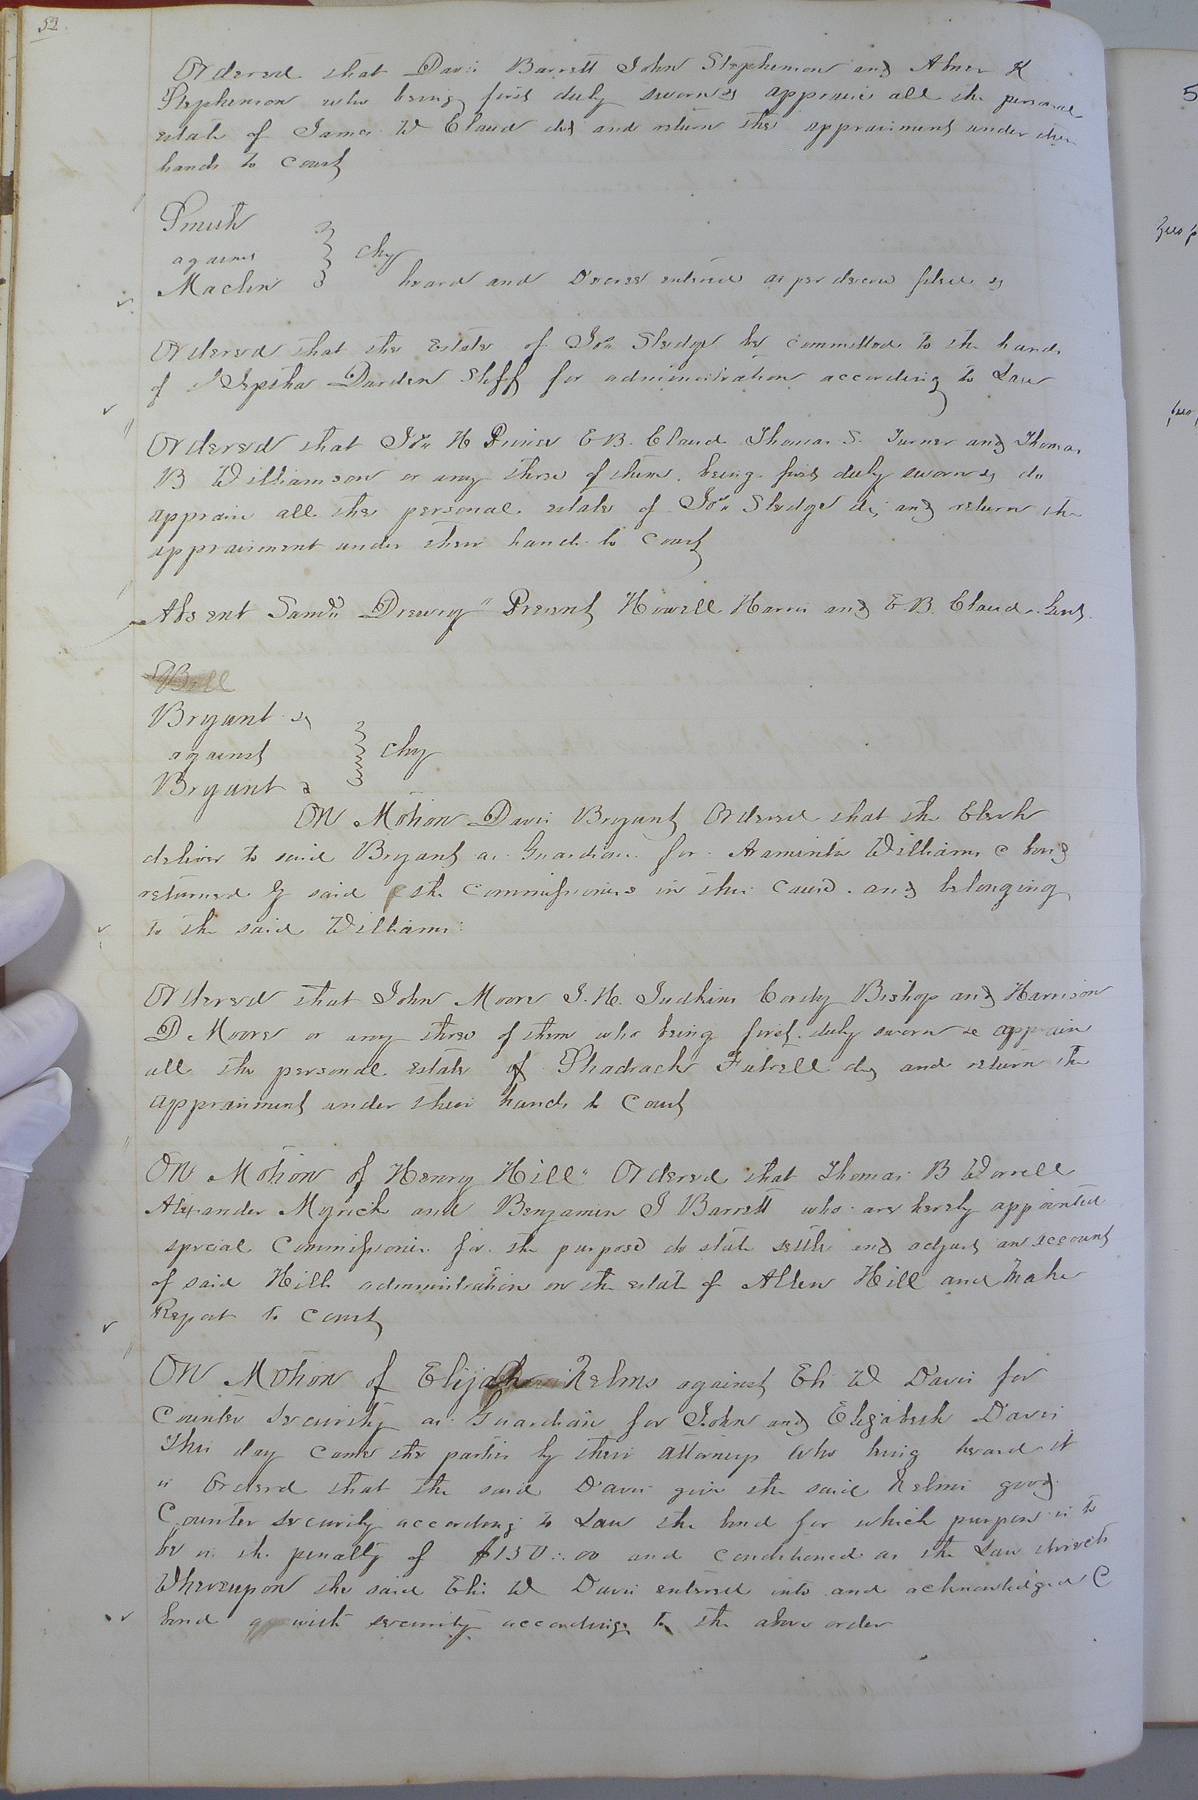 52
Ordered that Davis Barrett John Stephenson and Abner K
Stephenson who being first duly sworn &c appraise all the personal
estate of James W Claud decd and return the appraisment under their
hands to Court
Smith
against } Chy
Maclin heard and Decree entered as per decree filed &c
Ordered that the Estate of Jno Sledge be committed to the hands
of Jepitha Darden Shff for administration according to Law
Ordered that Jno H Prince E B. Claud Thomas S. Turner and Thomas
B Williamson or any three of them being first duly sworn &c do
appraise all the personal estate of Jno Sledge dec and return the
appraisment under their hands to Court
Absent Saml Drewry Present Howell Harris and E B. Claud. Gent.
Bell
Bryant &
against } Chy
Bryant &
On Motion Davis Bryant Ordered that the Clerk
deliver to said Bryant as Guardian for Araminta Williams a bond
returned by said the Commissioners in this Cause and belonging
to the said Williams
Ordered that John Moore J. H. Judkins Cordy Bishop and Harrison
D Moore or any three of them who being first duly sworn &c appraise
all the personal estate of Shadrach Futrell dec and return the
appraisment under their hands to Court
On Motion of Henry Hill Ordered that Thomas B Worrell
Alexander Myrick and Benjamin J Barrett who are hereby appointed
special Commissioners for the purpose do state settle and adjust an account
of said Hills administration on the estate of Allen Hill and make
Report to Court
On Motion of Elijah Nelms against Eli W Davis for
Counter Security as Guardian for John and Elizabeth Davis
This day came the parties by their attorneys who being heard it
is Ordered that the said Davis give the said Nelms good
Counter security according to Law the bond for which purpose is to
be in the penalty of $150..00 and conditioned as the Law directs
Whereupon the said Eli W Davis entered into and acknowledged a
bond with security according to the above order